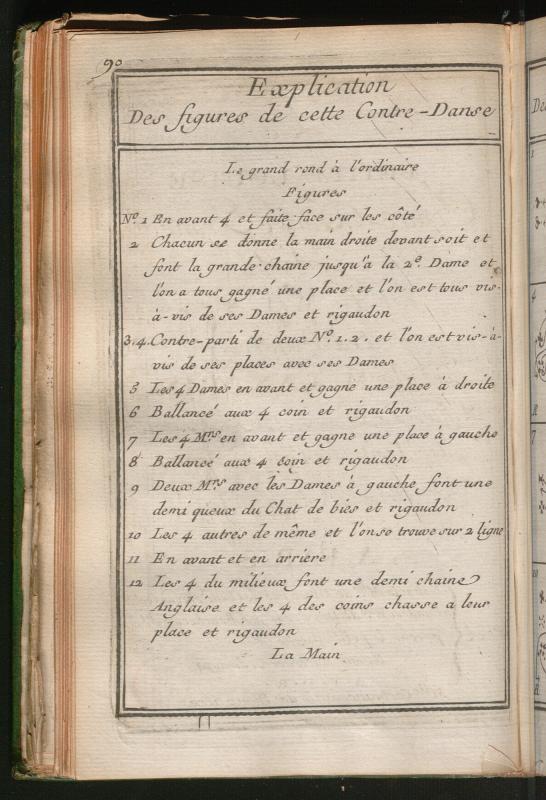 90
Explication
Des figures de cette Contre-Danse
Le grand rond à l'ordinaire
Figures
No. 1 En avant 4 et faite face sur les côté
2 Chacun se donne la main droite devant soit et
font la grande chaine jusqu'à la 2e. Dame et
l'on a tous gagné une place et l'on est tous vis-
à-vis de ses Dames et rigaudon
3.4. Contre-parti de deux No. 1.2. et l'on est vis-à-
vis de ses places avec ses Dames
5 Les 4 Dames en avant et gagne une place à droite
6 Ballancé aux 4 coin et rigaudon
7 Les 4 Mrs en avant et gagne une place à gauche
8 Ballancé aux 4 coin et rigaudon
9 Deux Mrs avec les Dames à gauche font une
demi queux du Chat de bies et rigaudon
10 Les 4 autres de même et l'on se trouve sur 2 ligne
11 En avant et en arriere
12 Les 4 du milieux font une demi chaine
Anglaise et les 4 des coins chasse a leur
place et rigaudon
La Main